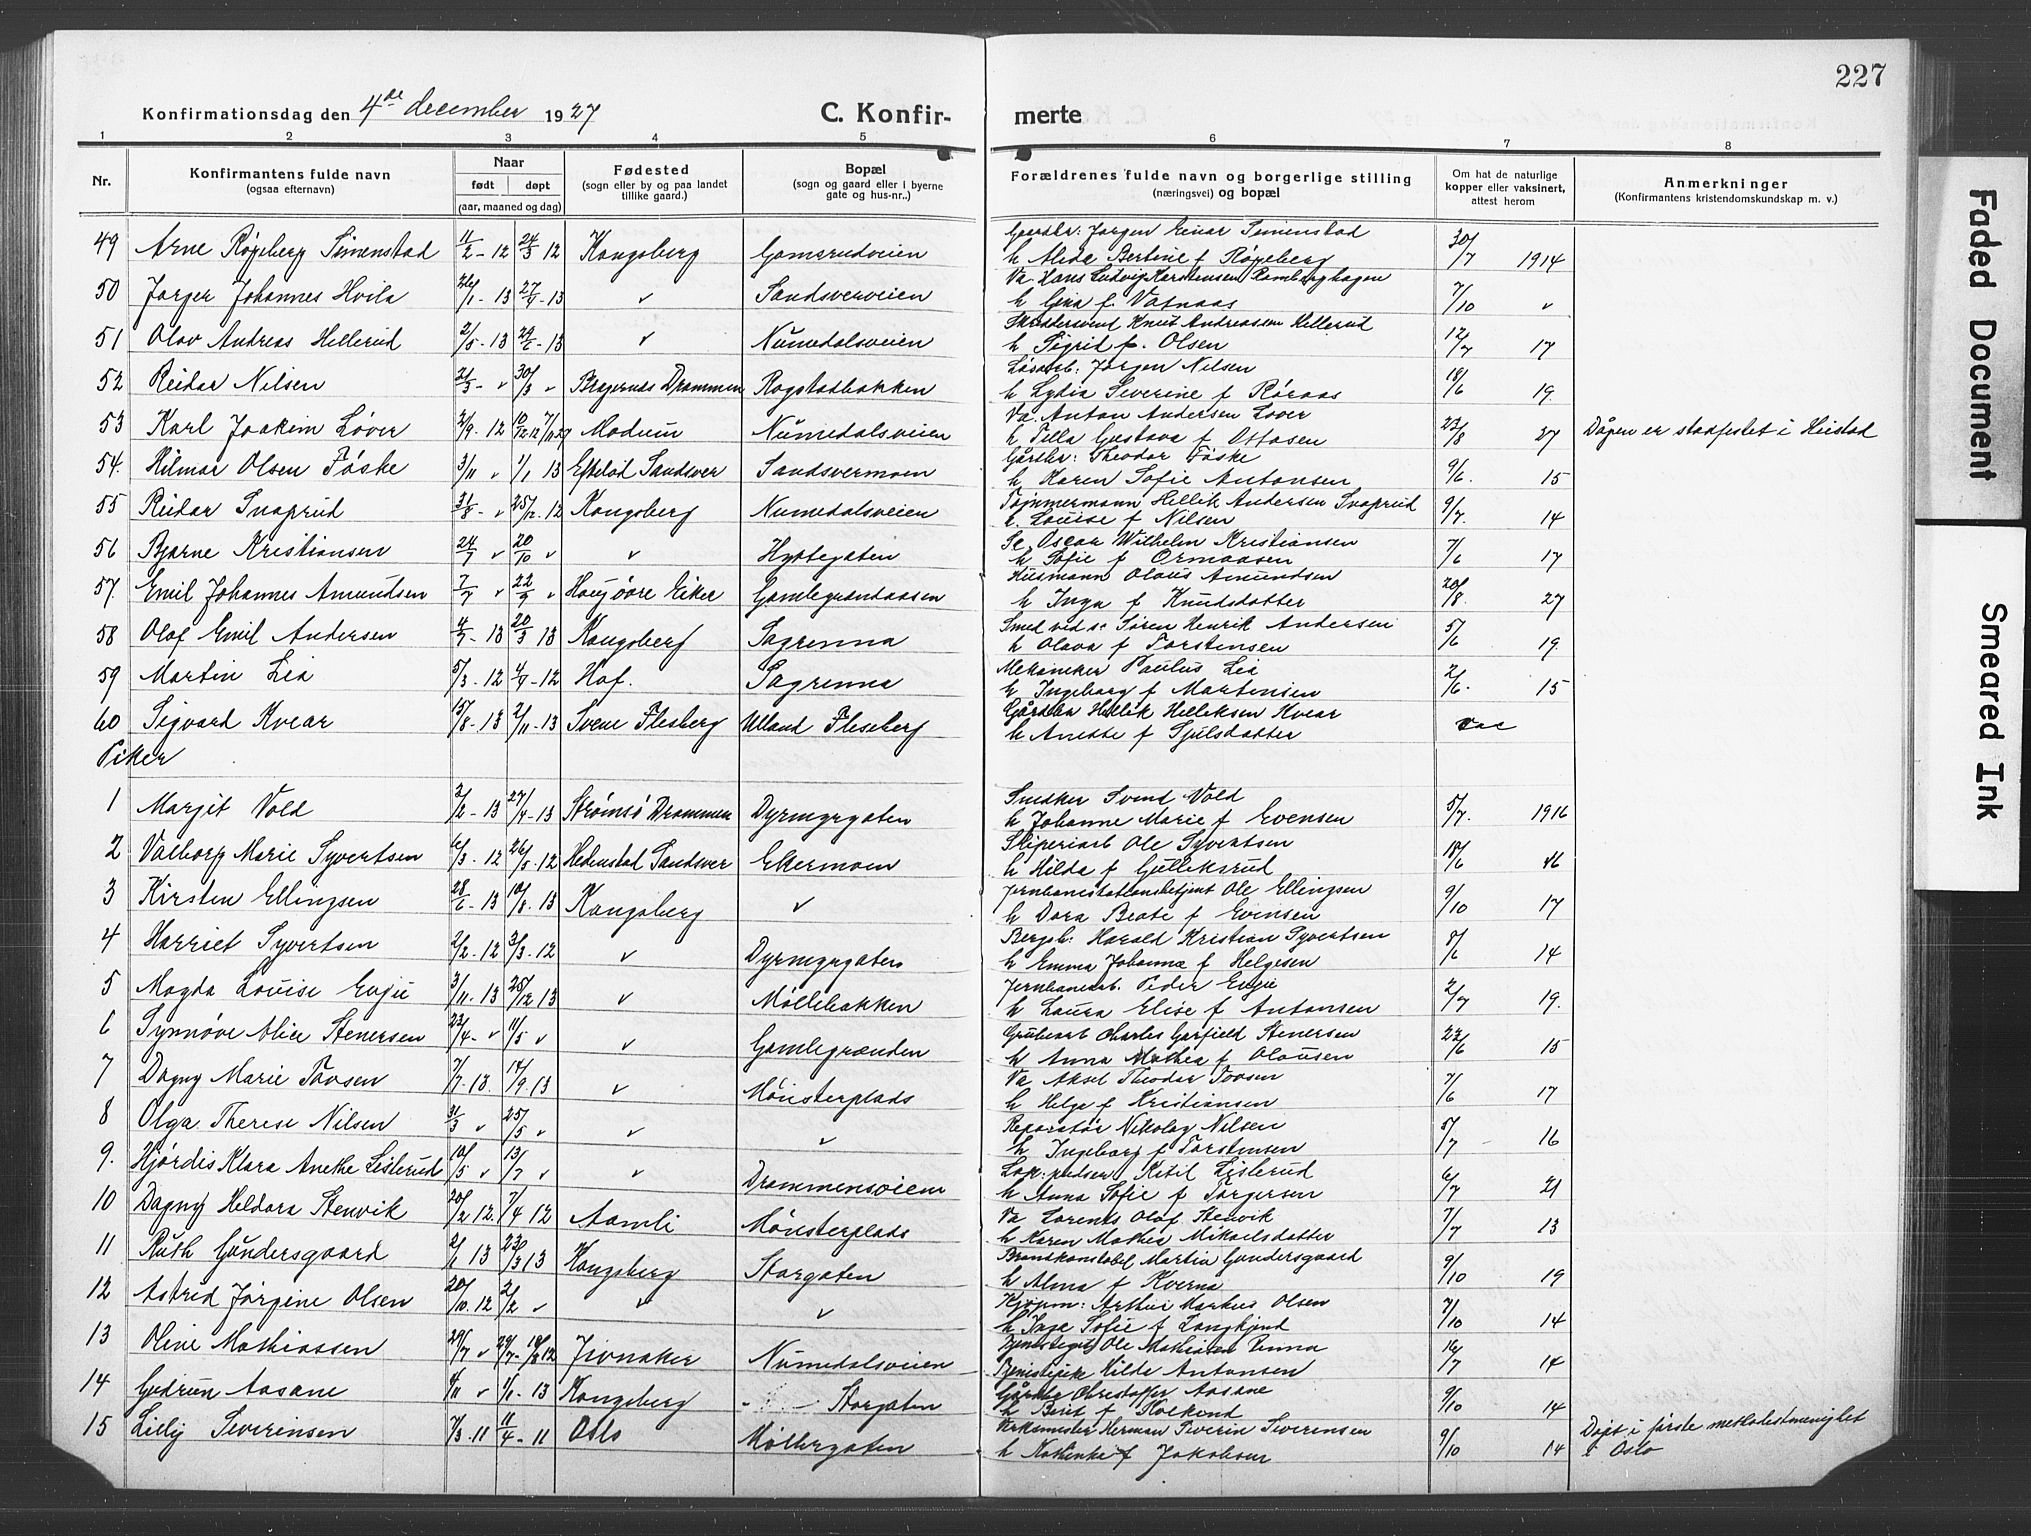 227
Konfirmationsdag den 4de december 1927
C. Konfir-
merte
1 2 3 4 5 6 7 8
Nr.
Konfirmantens fulde navn
(ogsaa efternavn)
Naar
født døpt
(aar, maaned og dag)
Fødested
(sogn eller by og paa landet
tillike gaard.)
Bopæl
(sogn og gaard eller i byerne
gate og hus-nr..)
Forældrenes fulde navn og borgerlige stilling
(næringsvei) og bopæl
Om hat de naturlige
kopper eller vaksinert,
attest herom
Anmerkninger
(Konfirmantens kristendomskundskap m. v.)
49 Arne Røgeberg Simenstad 11/2 - 12 24/3 12 Kongsberg Gomsrudveien Gaardbr: Jørgen Einar Simenstad 30/7 1914
h Alida Bertine f Røgeberg
50 Jørger Johannes Hvila 26/1 - 13 27/4 - 13 v Sandsverveien Va. Hans Ludvig Karstensen Ramberghagen 7/10 v
h Gina f. Vafnaas
51 Olav Andreas Hellerud 2/5 - 13 29/6 - 13 v Numedalsveien Skreddersvend Knut Andreassen Hellerud 12/7 17
h Sigrid f. Olsen
52 Reidar Nilsen 21/3 - v 30/3 v Bragernes Drammen Rogstadbakken Løsarb: Jørgen Nilsen 18/6 19
h Lydia Severine f Røraas
53 Karl Joakim Løver 2/9 - 12 Modum Numedalsveien Va. Anton Andersen Løver 23/8 27 Dåpen er stadfestet i Heistad
h Tilla Gustava f Ottosen
54. Hilmar Olsen Føske 3/11 v 1/1 13 Efteløt Sandsver Sandsvermoen Gårdbr: Theodor Føske 9/6. 15
h Karen Sofie Antonsen
55 Reidar Snaprud 31/8 - v 25/12. 12 Kongsberg Numedalsveien Tømmermann Hellik Andersen Snaprud 9/7. 14
h. Louise f Nilsen
56 Bjarne Kristiansen 24/7 v 20/10 v v Hyttegaten Sc. Oscar Wilhelm Kristiansen 7/6 17
h Sofie f Ormaasen
57. Emil Johannes Amundsen 7/7 v 22/9 v Haug øvre Eiker Gamlegrændaasen Husmann Olaus Amundsen 20/8. 27
h Inga f Knudsdatter
58 Olaf Emil Andersen 4/2 - 13 20/3 13 Kongsberg Sagrenna Smed ved sc Søren Henrik Andersen 5/6 19.
h Olava f Torstensen
59 Martin Lia 5/3 - 12 4/4 - 12 Hof. Sagrenna Mekaniker Paulus Lia 2/6. 15
h Ingeborg f Martinsen
60 Sigvard Kvear 15/8 - 13 2/11 - 13 Svene Flesberg Ulland Flesberg Gårdbr Hellik Helleksen Kvear
h Anette f Sjulsdatter
Piker
1 Margit Vold 3/2 - 13 27/4 - 13 Strømsø Drammen Dyrmyrgaten Snedker Svend Vold 5/7. 1916
h Johanne Marie f Evensen
2 Valborg Marie Syvertsen 6/3 - 12 26/5 - 12 Hedenstad Sandsver Ekermoen Sliperiarb Ole Syvertsen 18/6 16
h Hilda f Gulleksrud
3 Kirsten Ellingsen 28/6 - 13 10/8. 13 Kongsberg v Jernbanestationsbetjent Ole Ellingsen 9/10 17
h Dora Beate f Evensen
4 Harriet Syvertsen 2/2 - 12 3/3 - 12 v Dyrmyrgaten Bergsb: Harald Kristian Syvertsen 8/6 14
h Emma Johanna f Helgesen
5 Magda Louise Evju 3/11 - 13 25/12 13 v Møllebakken Jernbanearb. Peder Evju 2/7 19.
h Laura Elise f Antonsen
6 Synnøve Alice Stenersen 23/4 - v 11/5 v v Gamlegrænden Grubearb Charles Garfield Stenersen 23/6 15
h Anna Mathea f Olausen
7 Dagny Marie Tovsen 7/7 - 13. 14/9. 13 v Mønsterplads Va Aksel Theodor Tovsen 7/6 17
h Helga f Kristiansen
8 Olga Therese Nilsen 31/3 v 25/5 v v v Reparatør Nikolay Nilsen 5/7 16
h. Ingeborg f Torstensen
9. Hjørdis Klara Anethe Lislerud 10/5 v 13/7 v v Drammensveien Kitil Lislerud 6/7 21
h Anna Sofie f Torgersen
10 Dagny Heldora Stenvik 20/2 12. 7/4 12 Aamli Mønsterplads Va Lorents Olaf Stenvik 7/7 13
h Karen Mathea Mikaelsdatter
11 Ruth Gundersgaard 2/1 13 23/3 13 Kongsberg Storgaten Brandkonstabel Martin Gundersgaard 9/10 19
h Alma f Kverna
12 Astrid Jørgine Olsen 20/10. 12 2/2 v v v Kjøpm: Arthur Markus Olsen 7/10 14
h Inge Sofie f Langkjend
13 Oline Mathiassen 29/7 v Jevnaker Numedalsveien Tjenestegut Ole Mathiasen Rinna 16/7 14
Tjenestepike Hilda Antonsen
14 Gudrun Aasane 4/11 v 1/1 - 13 Kongsberg Storgaten Gårdbr Christoffer Aasane 9/10 14
h Berit f Kolkind
15 Lilly Severinsen 7/3. 11 11/4 - 11 Oslo Møllergaten Verkmester Herman Severin Severinsen 9/10 14 Døpt i første methodistmenighet
h Nathinka f Jakobsen i Oslo
Faded Document
Smeared Ink